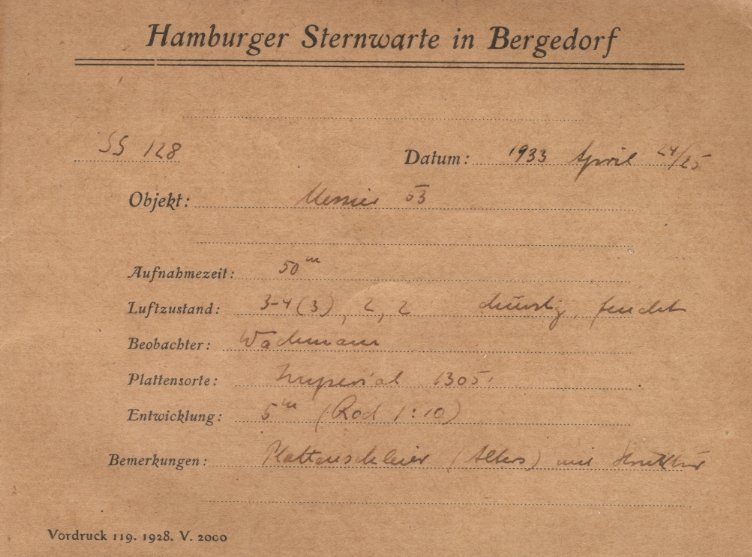 Hamburger Sternwarte in Bergedorf
SS 128 Datum: 1933 April 24/25
Objekt: Messier 53
Aufnahmezeit: 50ᵐ
Luftzustand: 3-4 (3), 2, 2 dunstig, feucht
Beobachter: Wachmann
Plattensorte: Imperial 1305.
Entwicklung: 5ᵐ (Rod 1:10)
Bemerkungen: Plattenschleier (Alters) mit Struktur
Vordruck 119. 1928. V. 2000